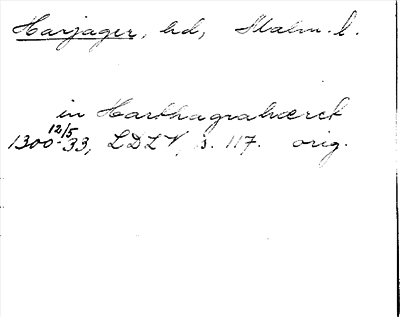 Harjager, hd, Malm. l.
in Harthagrahærck
12/5
1300-33, LDLV, s. 117. orig.